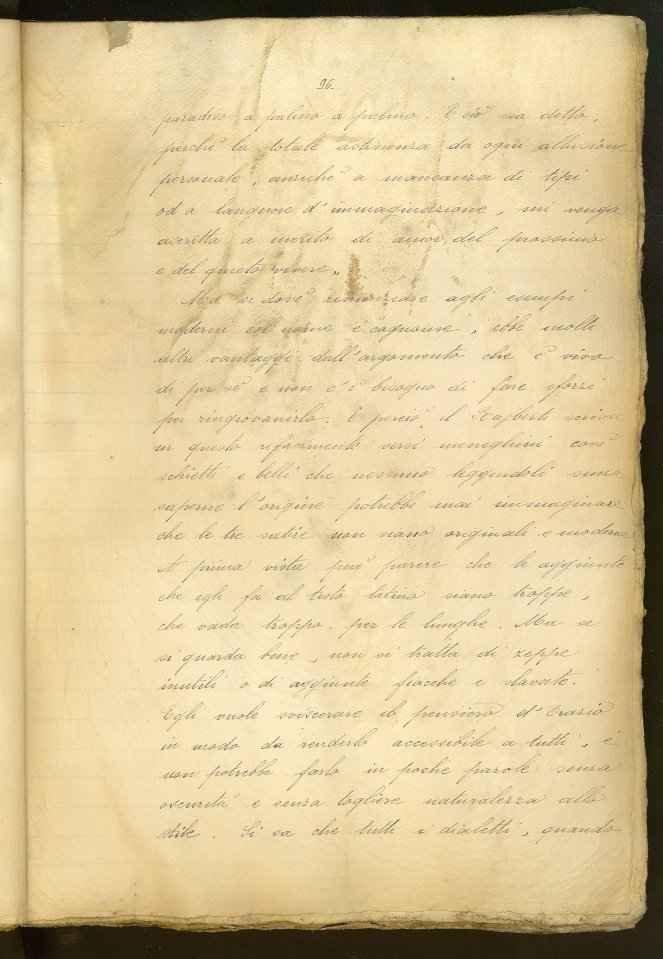 96.
paradiso a palmo a palmo. E ciò sia detto,
perchè la totale astinenza da ogni allusione
personale, anzichè a mancanza di tipi
od a languore d'immaginazione, mi venga
ascritta a merito di amor del prossimo
e del quieto vivere„
Ma se dovè rinunziare agli esempi
moderni col nome e cognome, ebbe molti
altri vantaggi dall'argomento che è vivo
di per sè e non c'è bisogno di fare sforzi
per ringiovanirlo. E perciò il Rajberti scrisse
in questo rifacimento versi meneghini così
schietti e belli che nessuno leggendoli senza
saperne l'origine potrebbe mai immaginare
che le tre satire non siano originali e moderne.
A prima vista può parere che le aggiunte
che egli fa al testo latino siano troppe,
che vada troppo per le lunghe. Ma se
si guarda bene, non si tratta di zeppe
inutili o di aggiunte fiacche e slavate.
Egli vuole sviscerare il pensiero d'Orazio
in modo da renderlo accessibile a tutti, e
non potrebbe farlo in poche parole senza
oscurità e senza togliere naturalezza allo
stile. Si sa che tutti i dialetti, quando